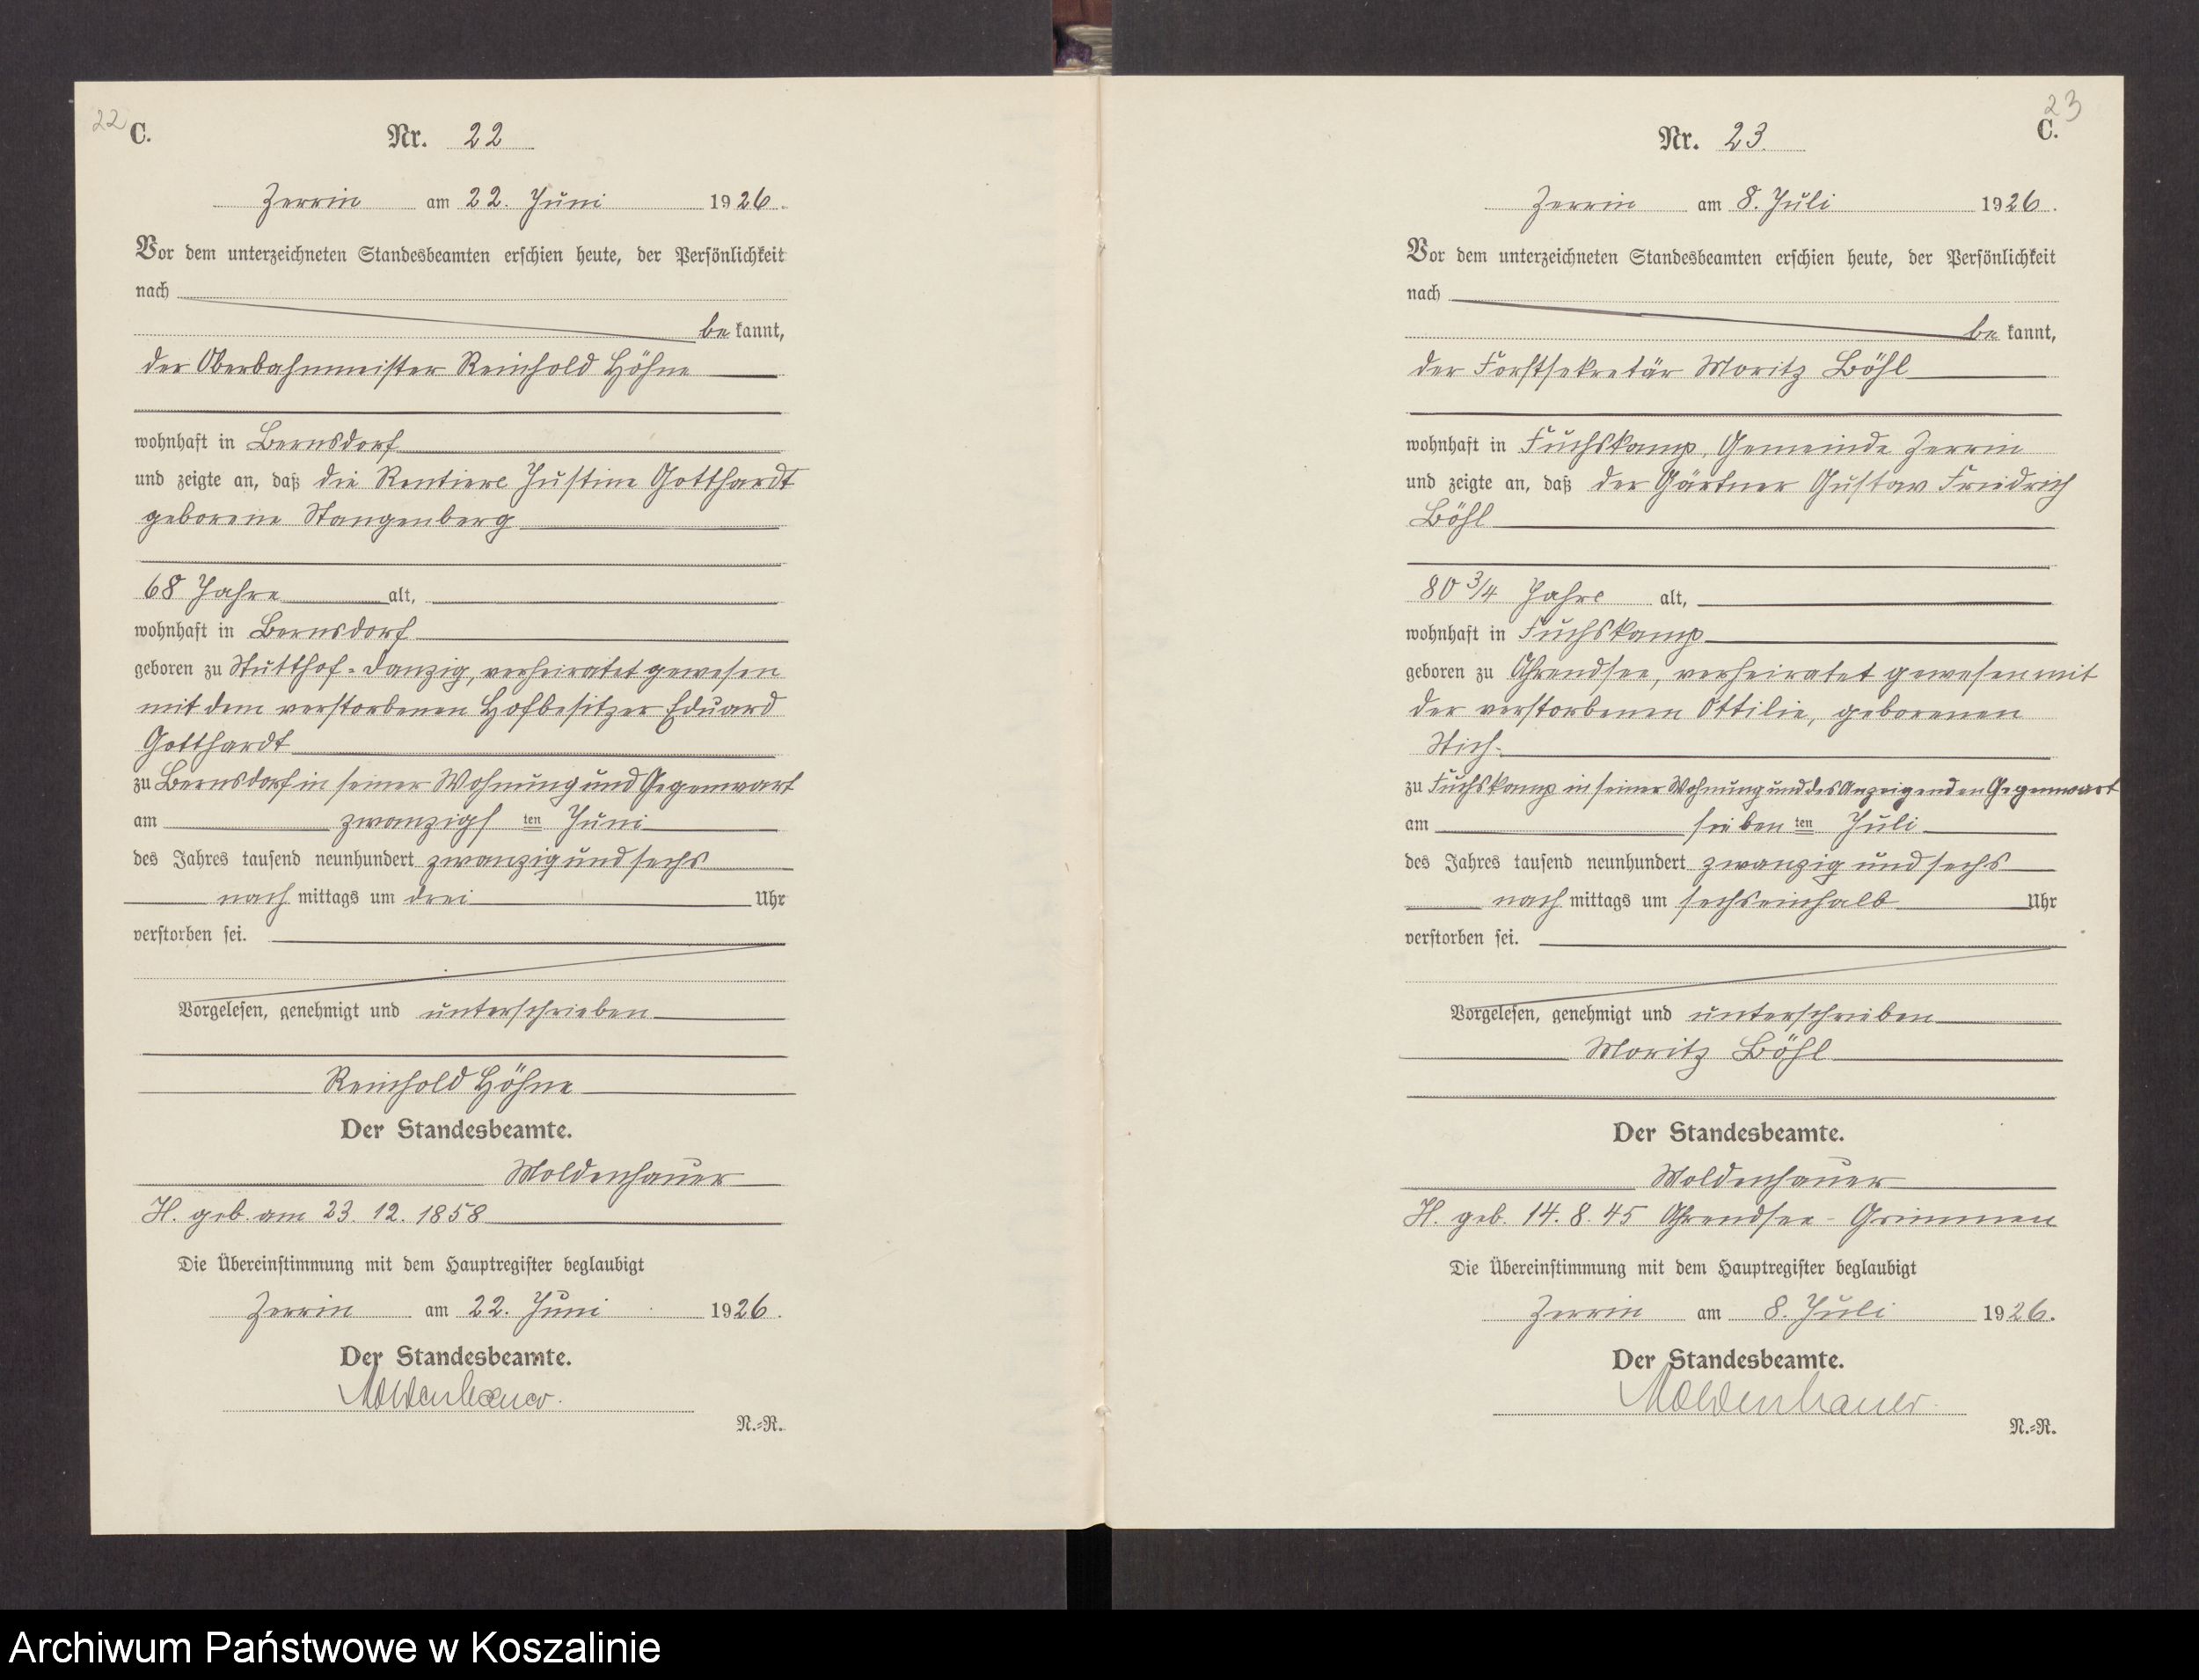 22
C.
Nr. 22
Zerrin am 22. Juni 1926.
Vor dem unterzeichneten Standesbeamten erschien heute, der Persönlichkeit
nach
be kannt,
der Oberbahnmeister Reinhold Höhne
wohnhaft in Bernsdorf
und zeigte an, daß die Rentiere Justine Gotthardt
geborene Stangenberg
68 Jahre alt,
wohnhaft in Bernsdorf
geboren zu Stutthof-Danzig, verheiratet gewesen
mit dem verstorbenen Hofbesitzer Eduard
Gotthardt
zu Bernsdorf in seiner Wohnung und Gegenwart
am zwanzigs ten Juni
des Jahres tausend neunhundert zwanzig und sechs
nach mittags um drei Uhr
verstorben sei.
Vorgelesen, genehmigt und unterschrieben
Reinhold Höhne
Der Standesbeamte.
Moldenhauer
H. geb. am 23. 12. 1858
Die Übereinstimmung mit dem Hauptregister beglaubigt
Zerrin am 22. Juni 1926.
Der Standesbeamte.
Moldenhauer.
N.=R.
23
C.
Nr. 23.
Zerrin am 8. Juli 1926.
Vor dem unterzeichneten Standesbeamten erschien heute, der Persönlichkeit
nach
be kannt,
der Forstsekretär Moritz Böhl
wohnhaft in Fuchskamp, Gemeinde Zerrin
und zeigte an, daß der Gärtner Gustav Friedrich
Böhl
80 3/4 Jahre alt,
wohnhaft in Fuchskamp
geboren zu Ahrendsee, verheiratet gewesen mit
der verstorbenen Ottilie, geborenen
Stich.
zu Fuchskamp in seiner Wohnung und des Anzeigenden Gegenwart
am sieben ten Juli
des Jahres tausend neunhundert zwanzig und sechs
nach mittags um sechseinhalb Uhr
verstorben sei.
Vorgelesen, genehmigt und unterschrieben
Moritz Böhl
Der Standesbeamte.
Moldenhauer
H. geb. 14. 8. 45 Ahrendsee - Grimmen
Die Übereinstimmung mit dem Hauptregister beglaubigt
Zerrin am 8. Juli 1926.
Der Standesbeamte.
Moldenhauer.
N.=R.
Archiwum Państwowe w Koszalinie